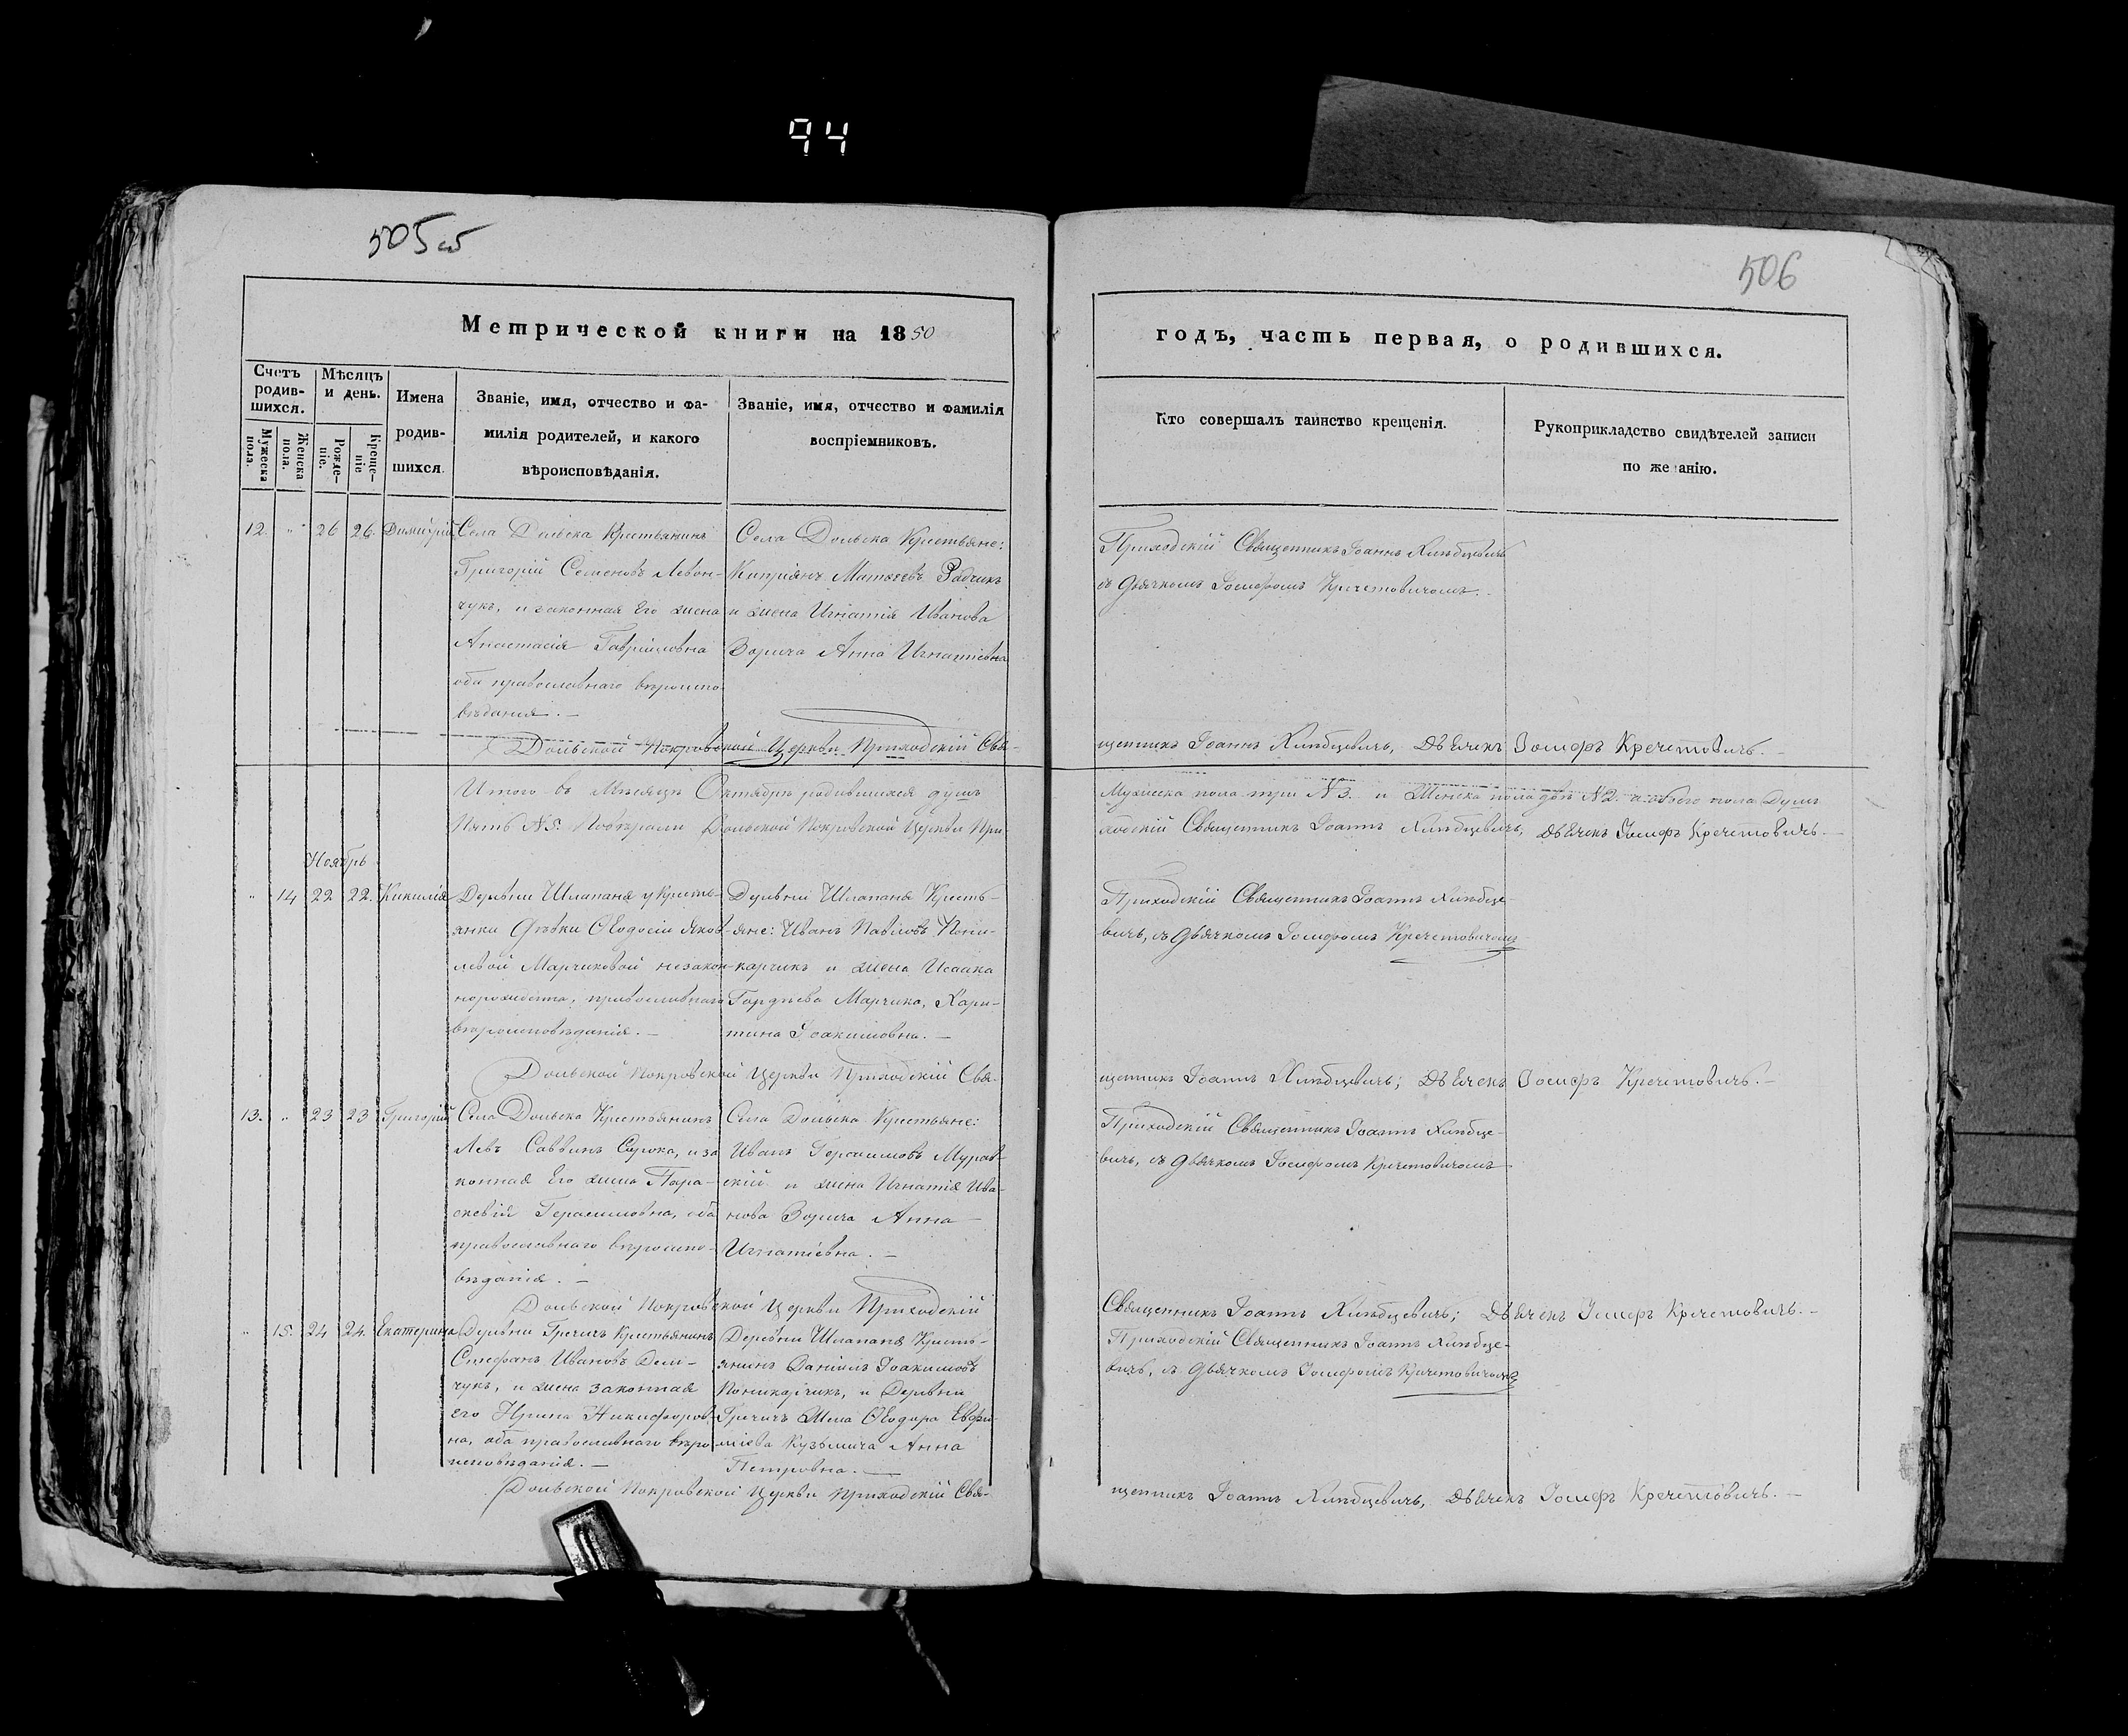 94
505 об
506
Метрической книги на 1850
годъ, часть первая, о родившихся.
Счетъ родив-шихся.
Мѣсяцъ и день.
Имена родив-шихся.
Званіе, имя, отчество и фа-
милія родителей, и какого
вѣроисповѣданія.
Званіе, имя, отчество и фамилія
воспріемниковъ.
Мужеска пола.
Женска пола.
Рожде-ніе.
Креще-ніе
Кто совершалъ таинство крещенія.
Рукоприкладство свидѣтелей записи
по же анію.
12. " 26 26. Димитрій
Села Дольска Крестьянинъ
Григорій Семеновъ Левон-
чукъ, и законная Его жена
Анастасія Гавріиловна
оба православнаго вѣроиспо-
вѣданія. —
Села Дольска Крестьяне:
Кипріянъ Матѳеевъ Радчикъ
и жена Игнатія Иванова
Зорича Анна Игнатіевна
Приходскій Священникъ Іоаннъ
съ Дьячкомъ Іосифомъ Кречетовичомъ.
Дольской Покровской Церкви Приходскій Свя-
щенникъ Іоаннъ Дьячекъ Іосифъ Кречетовичъ. —
Итого въ Мѣсяцѣ Октябрѣ родившихся душъ
Мужеска пола три №3. и Женска пола двѣ №2. а обоего пола Душъ
Пять №5. Повѣряли Дольской Покровской Церкви При-
ходскій Священникъ Іоаннъ Дьячекъ Іосифъ Кречетовичъ —
Ноябрь
" 14 22 22. Кикилія
Деревни Шлапаня у Кресть-
янки Дѣвки Ѳеодосіи Яков-
левой Марчиковой незакон-
норожденна, православнаго
вѣроисповѣданія. —
Деревни Шлапаня Кресть-
яне: Иванъ Павловъ Пони-
карчикъ и жена Исаака
Гордѣева Марчика, Хари-
тина Іоакимовна. —
Приходскій Священникъ Іоаннъ
вичъ, съ Дьячкомъ Іосифомъ Кречетовичомъ
Дольской Покровской Церкви Приходскій Свя-
щенникъ Іоаннъ Дьячекъ Іосифъ Кречетовичъ. —
13. " 23 23 Григорій
Села Дольска Крестьянинъ
Левъ Саввинъ Сорока, и за
конная Его жена Пара-
скевія Герасимовна, оба
православнаго вѣроиспо-
вѣданія. —
Села Дольска Крестьяне:
Иванъ Герасимовъ Мурав-
скій и жена Игнатія Ива-
нова Зорича Анна
Игнатіевна. —
Приходскій Священникъ Іоаннъ
вичъ, съ Дьячкомъ Іосифомъ Кречетовичомъ
Дольской Покровской Церкви Приходскій
Священникъ Іоаннъ Дьячекъ Іосифъ Кречетовичъ. —
" 15. 24 24. Екатерина
Деревни Гречичъ Крестьянинъ
Стефанъ Ивановъ Деми-
чукъ, и жена законная
его Ирина Никифоров-
на, оба православнаго вѣро
исповѣданія. —
Деревни Шлапаня Кресть-
янинъ Даніилъ Іоакимовъ
Поникарчикъ, и Деревни
Гречичъ Жена Ѳеодора Евфи-
міева Кузьмича Анна
Петровна. —
Приходскій Священникъ Іоаннъ
вичъ, съ Дьячкомъ Іосифомъ Кречетовичомъ
Дольской Покровской Церкви Приходскій Свя-
щенникъ Іоаннъ Дьячекъ Іосифъ Кречетовичъ. —